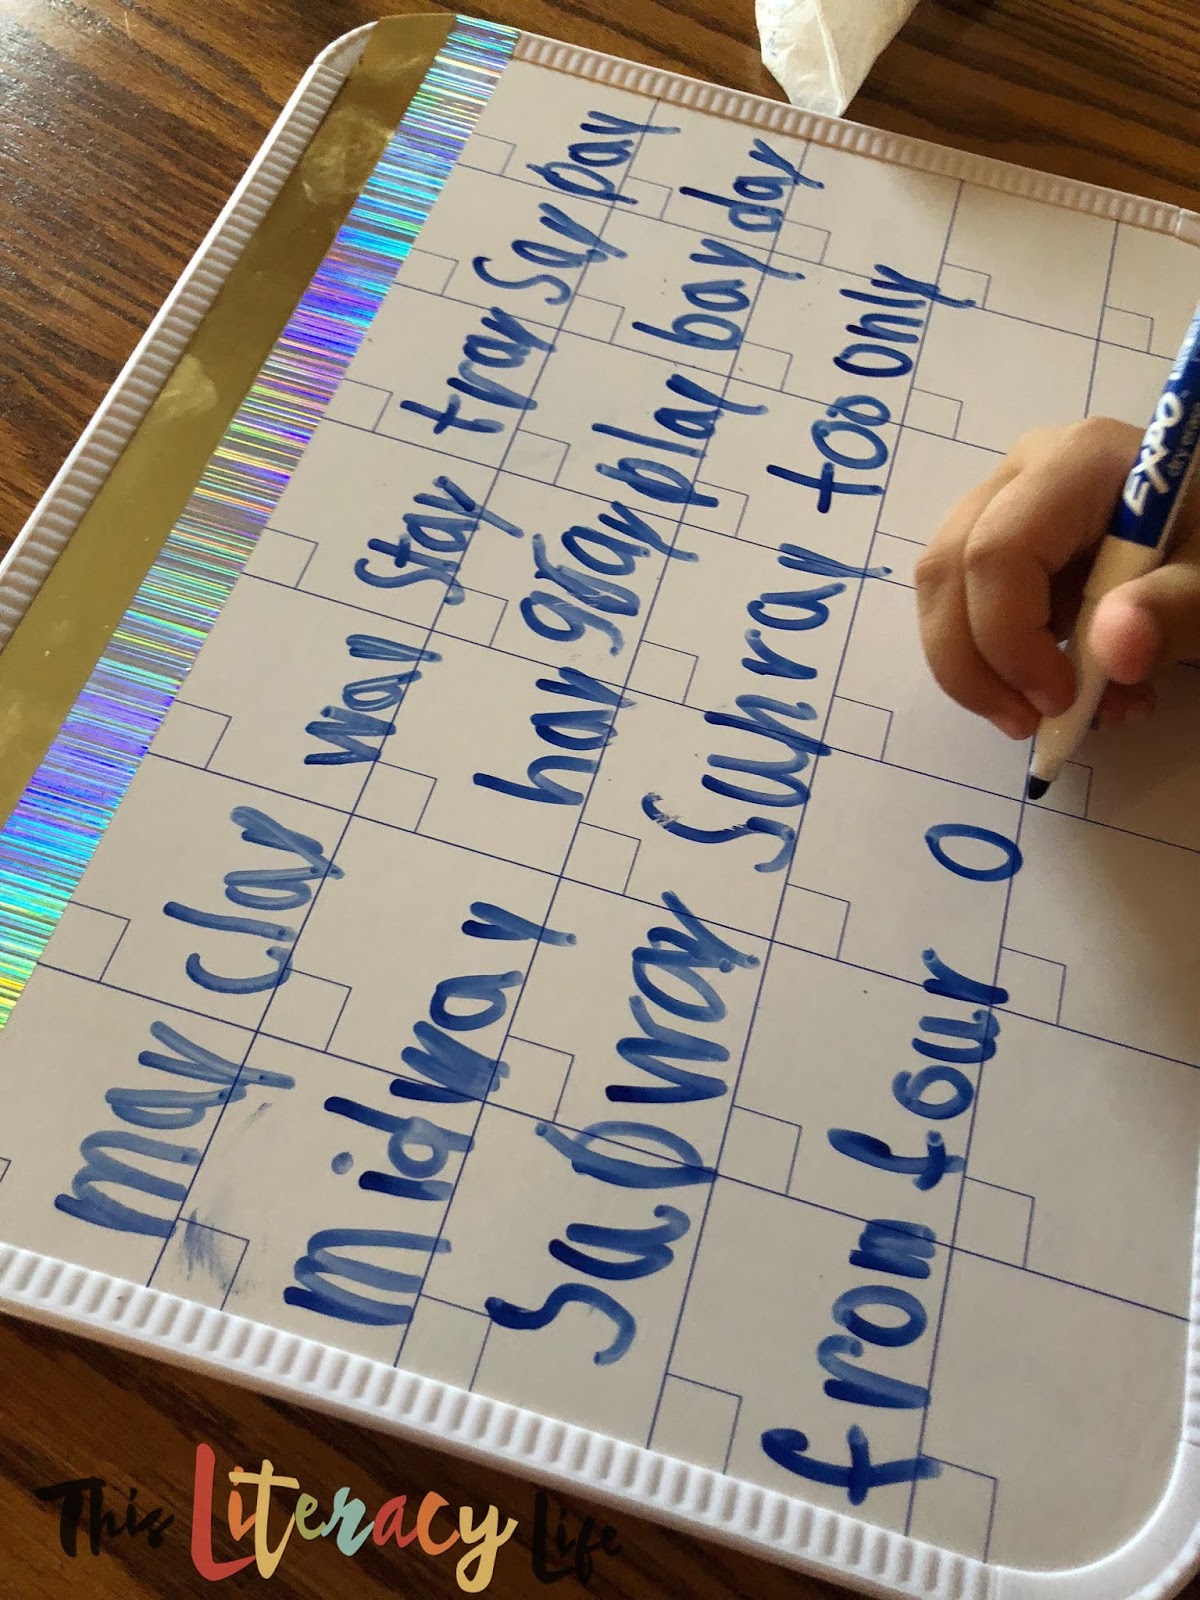 may clay way stay tray say pay
midway hay gray play bay day
Subway Sunray too only
from four o
EXPO
This Literacy Life